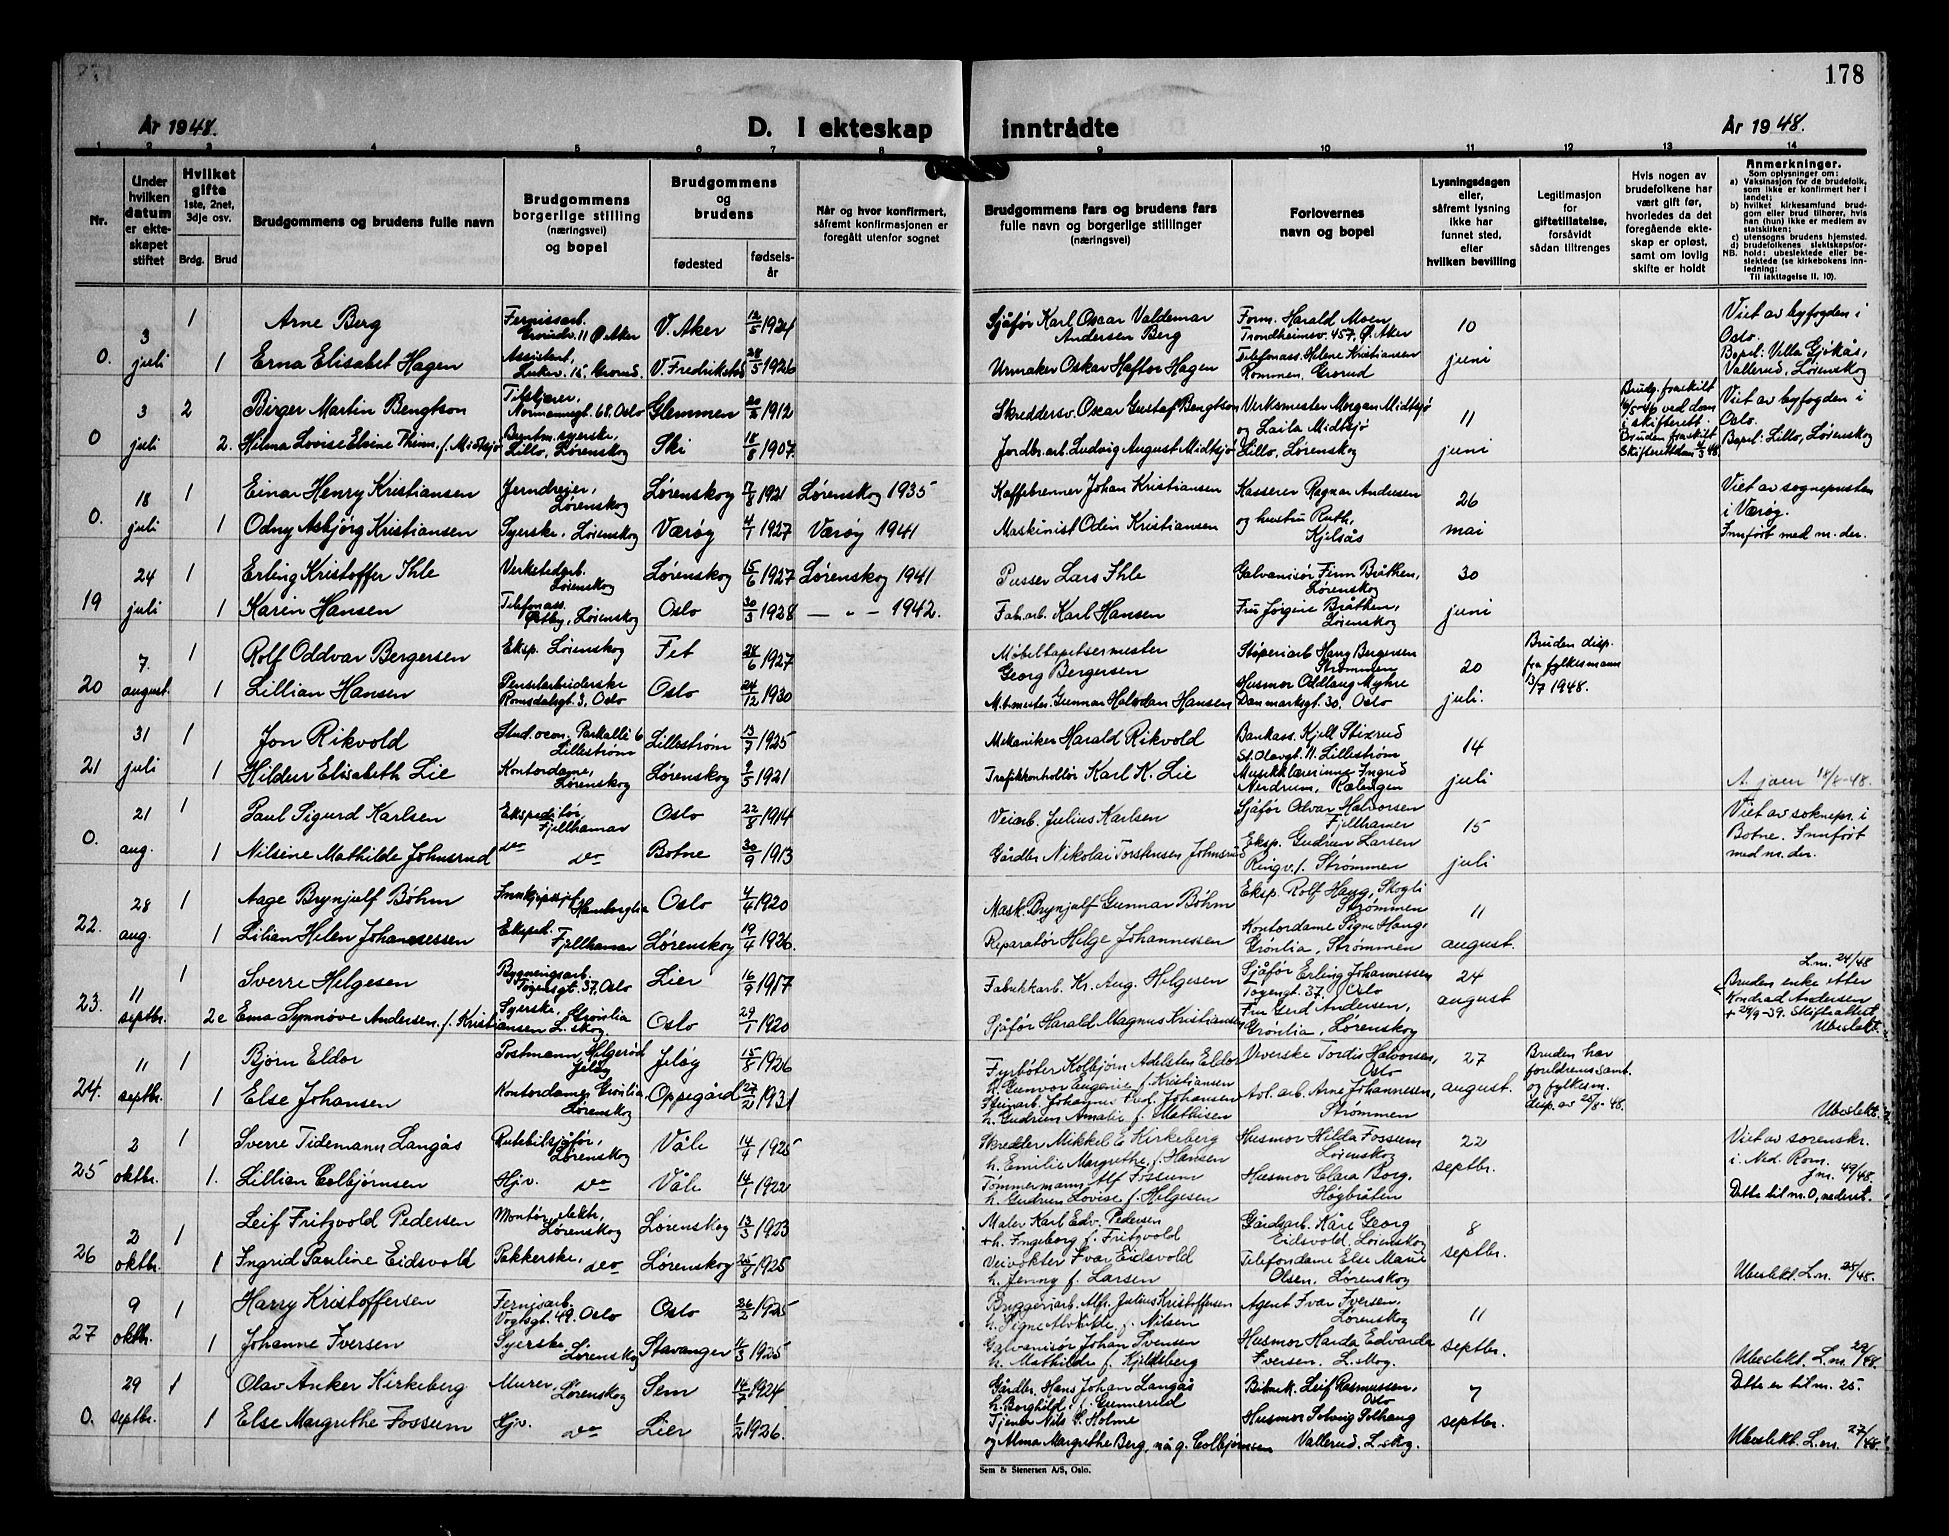 178
År 1948.
D. I ekteskap inntrådte
År 1948.
1 2 3 4 5 6 7 8 9 10 11 12 13 14
Nr.
Under hvilken datum er ekteskapet stiftet
Hvilket gifte 1ste, 2net, 3dje osv.
Brdg. Brud
Brudgommens og brudens fulle navn
Brudgommens borgerlige stilling (næringsvei) og bopel
Brudgommens og brudens
fødested
fødselsår
Når og hvor konfirmert, såfremt konfirmasjonen er foregått utenfor sognet
Brudgommens fars og brudens fars fulle navn og borgerlige stillinger (næringsvei)
Forlovernes navn og bopel
Lysningsdagen eller, såfremt lysning ikke har funnet sted, efter hvilken bevilling
Legitimasjon for giftetillatelse, forsåvidt sådan tiltrenges
Hvis nogen av brudefolkene har vært gift før, hvorledes da det foregående ekteskap er opløst, samt om lovlig skifte er holdt
Anmerkninger.
Som oplysninger om:
a) Vaksinasjon for de brudefolk, som ikke er konfirmert her i landet;
b) hvilket kirkesamfund brudgom eller brud tilhører, hvis han (hun) ikke er medlem av statskirken;
c) utensogns brudens hjemsted.
d) brudefolkenes slektskapsforhold: ubeslektede eller beslektede (se kirkebokens innledning:
NB. Til Iakttagelse II. 10).
0. 3 juli 1 Arne Berg Fernissarb. Grorudv. 11 Ø. Aker V. Aker 12/5 1924 Sjåfør Karl Oscar Valdemar Andersen Berg Form. Harald Moen, Trondheimsv. 457, Ø. Aker 10 juni Viet av byfogden i Oslo.
1 Erna Elisabet Hagen Assistent, 15 Grorud. V. Fredrikstad 28/5 1926 Urmaker Oskar Haftor Hagen Telefonass. Helene Kristiansen Rommen, Grorud Bopel: Villa Gjøkås, Vallerud, Lørenskog
0 3 juli 2 Birger Martin Bengtson Normannsgt. 68. Oslo Glemmen 1912 Skreddersv. Oscar Gustaf Bengtson Verksmester Morgan Midtsjø og Laila Midtsjø 11 juni Brudg. fraskilt ved dom i skifterett. Viet av byfogden i Oslo.
2. Hilma Lovise Elvine Thinn, f. Midtsjø syerske, Lillo, Lørenskog Ski 18/8 1907. Jordbr. arb. Ludvig August Midtsjø Lillo, Lørenskog Bruden fraskilt Bopel: Lillo, Lørenskog
0. 18 juli 1 Einar Henry Kristiansen Jerndreier, Lørenskog Lørenskog 7/8 1921 Lørenskog 1935 Kaffebrenner Johan Kristiansen Kasserer Ragnar Andresen 26 mai Viet av sognepresten i Værøy.
1 Odny Asbjørg Kristiansen Syerske, Lørenskog Værøy 4/1 1927 Værøy 1941 Maskinist Odin Kristiansen og hustru Ruth, Kjelsås Innført med nr. der.
19 24 juli 1 Erling Kristoffer Ihle Verkstedarb. Lørenskog Lørenskog 15/6 1927 Lørenskog 1941 Pusser Lars Ihle Galvanisør Finn Bråthen, Lørenskog 30 juni
1 Karin Hansen Telefonass. Østby, Lørenskog Oslo 30/3 1928 — " — 1942. Fab. arb. Karl Hansen Fru Jørgine Bråthen, Lørenskog
20 7 august. 1 Rolf Oddvar Bergersen Eksp. Lørenskog Fet 28/6 1927 Møbeltapetsermester Georg Bergersen Støperiarb. Hans Bergersen Strømmen 20 juli. Bruden disp. fra fylkesmann 13/7 1948.
1 Lillian Hansen Penselarbeiderske Romsdalsgt. 3. Oslo Oslo 24/12 1930 Gunnar Halvdan Hansen Husmor Oddlaug Myhre Danmarksgt. 30. Oslo
21 31 juli 1 Jon Rikvold Stud. oecon. Parkallé 6 Lillestrøm Lillestrøm 13/7 1925 Mekaniker Harald Rikvold Bankass. Kjell Stixrud St. Olavgt. 11. Lillestrøm 14 juli
1 Hildur Elisabeth Lie Kontordame, Lørenskog Lørenskog 9/5 1921 Trafikkontrollør Karl K. Lie Musikklærerinne Ingrid Nerdrum, Rælingen 18/8-48.
0. 21 aug. 1 Paul Sigurd Karlsen Ekspeditør, Fjellhamar Oslo 22/8 1914 Veiarb. Julius Karlsen Sjåfør Odvar Halvorsen Fjellhamar 15 juli Viet av soknepr. i Botne. Innført med nr. der.
1 Nilsine Mathilde Johnsrud do do Botne 30/9 1913 Gårdbr. Nikolai Torstensen Johnsrud Eksp. Gudrun Larsen Ringv. 1. Strømmen
22. 28 aug. 1 Aage Brynjulf Bøhm Hamborglia Oslo 4/4 1920 Mask. Brynjulf Gunnar Bøhm Eksp. Rolf Haug, Skogli Strømmen 11 august.
1 Lilian Helen Johannessen Eksped. Fjellhamar Lørenskog 19/4 1926. Reparatør Helge Johannessen Kontordame Signe Haug Grønlia, Strømmen
23. 11 septbr. 1 Sverre Helgesen Bygningsarb. Tøyengt. 37. Oslo Lier 16/9 1917 Fabrikkarb. Kr. Aug. Helgesen Sjåfør Erling Johannessen Tøyengt. 37. Oslo 24 august L.nr. 24/48 Bruden enke etter Konrad Andersen + 29/9-39. Skifteattest Ubeslekt.
2e Erna Synnøve Andersen, f. Kristiansen Syerske, Grønlia L. skog. Oslo 29/1 1920 Sjåfør Harald Magnus Kristiansen Fru Gerd Andersen, Grønlia, Lørenskog
24. 11 septbr. 1 Bjørn Eldor Postmann Helgerød Jeløy Jeløy 15/8 1926 Fyrbøter Kolbjørn Adelsten Eldor h. Gunvor Eugenie f. Kristiansen Veverske Tordis Halvorsen, Oslo 27 august. Bruden har foreldrenes samt. og fylkesm. disp. av 25/8-48.
1 Else Johansen Kontordame, Grønlia, Lørenskog Oppegård 27/2 1931 Johannes Karl Johansen h. Gudrun Amalie f. Mathisen Avl. arb. Arne Johannesen, Strømmen Ubeslekt.
25 2 oktbr. 1 Sverre Tidemann Langås Rutebilsjåfør, Lørenskog Våle 14/4 1925 Skredder Mikkel E Kirkeberg h. Emilie Margrethe f. Hansen Husmor Hilda Fossum Lørenskog 22 septbr. Viet av sorenskr. i Ned. Rom. J nr. 49/48.
1. Lillian Colbjørnsen Hjv. do Våle 14/1 1922 Tømmermann Alf Fossum h. Gudrun Lovise f. Helgesen Husmor Clara Borg. Høybråten Dette til nr. 0, nederst.
26 2 oktbr. 1 Leif Fritzvold Pedersen Montør, elektr, Lørenskog Lørenskog 13/3 1923 Maler Karl Edv. Pedersen +h. Ingeborg f. Fritzvold Gårdsarb. Kåre Georg Eidsvold. Lørenskog 8 septbr.
1 Ingrid Pauline Eidsvold Pakkerske, do Lørenskog 25/8 1925 Veivokter Ivar Eidsvold h. Jenny f. Larsen Telefondame Else Marie Olsen, Lørenskog Ubeslekt. L.nr. 25/48.
27 9 oktbr. 1 Harry Kristoffersen Fernisarb. Vogtsgt. 49. Oslo Oslo 26/2 1925 Bryggeriarb. Alf. Julius Kristoffersen h. Signe f. Nilsen Agent Ivar Iversen, Lørenskog 11 septbr.
1 Johanne Iversen Syerske, Lørenskog Stavanger 1925 Galvanisør Johan Ivensen h. Mathilde f. Kjeldsberg Husmor Harda Edvarda Iversen. L. skog. Ubeslekt. L.nr. 29/48.
0. 29 septbr. 1 Olav Anker Kirkeberg Murer, Lørenskog Sem 14/7 1924 Gårdbr. Hans Johan Langås h. Borghild, f. Gunnerød Leif Rasmussen, Oslo 7 septbr. Dette er til nr. 25.
1 Else Margrethe Fossum Hjv. do Lier 1/2 1926. Tjener Nils G. Holme og Alma Margrethe Berg, nå g. Colbjørnsen Husmor Solveig Solhaug Vallerud. L. skog. Ubeslekt. L.nr. 27/48.
Sem & Stenersen A/S, Oslo.